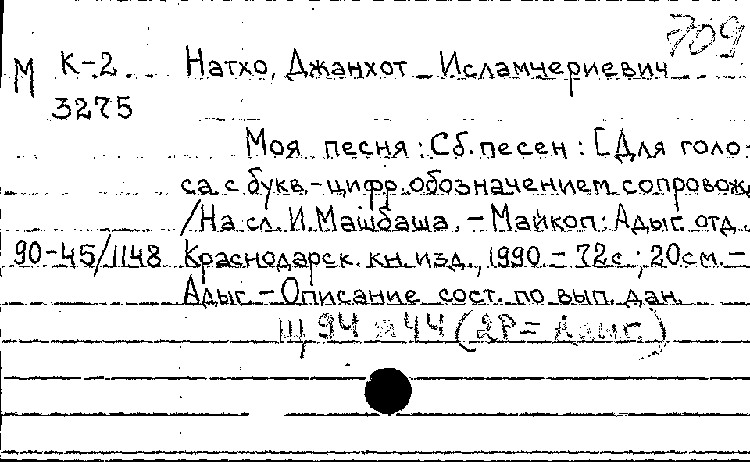 709
М К-2 Натхо, Джанхот Исламчериевич
3275
Моя песня : Сб. песен : [Для голо-
са с букв.-цифр. обозначением сопровожд.
/На сл. И. Машбаша. - Майкоп: Адыг. отд.
90-45/1148 Краснодарск. кн. изд., 1990 - 72с.; 20см. -
Адыг. - Описание сост. по вып. дан.
Щ 94 я 44 (2Р = Адыг.)